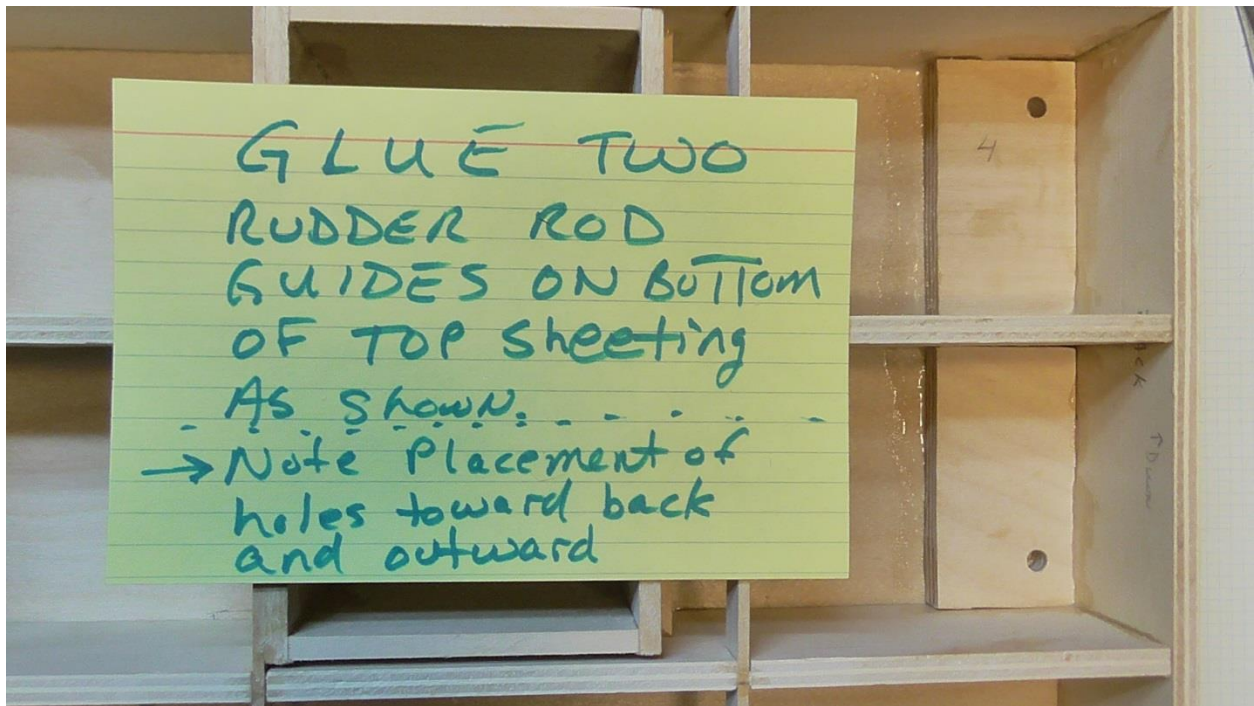 GLUE TWO
RUDDER ROD
GUIDES ON BOTTOM
OF TOP Sheeting
AS Shown.
→ Note Placement of
holes toward back
and outward
4